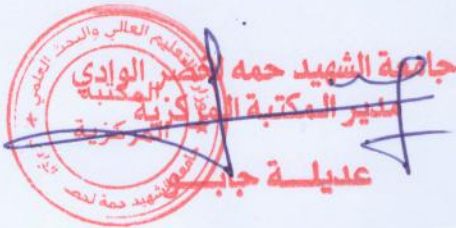 جامعة الشهيد حمه لخضر الوادي
مدير المكتبة المركزية
عديلة جابـــو
وزارة التعليم العالي والبحث العلمي
المكتبة
المركزية
جامعة الشهيد حمة لخضر